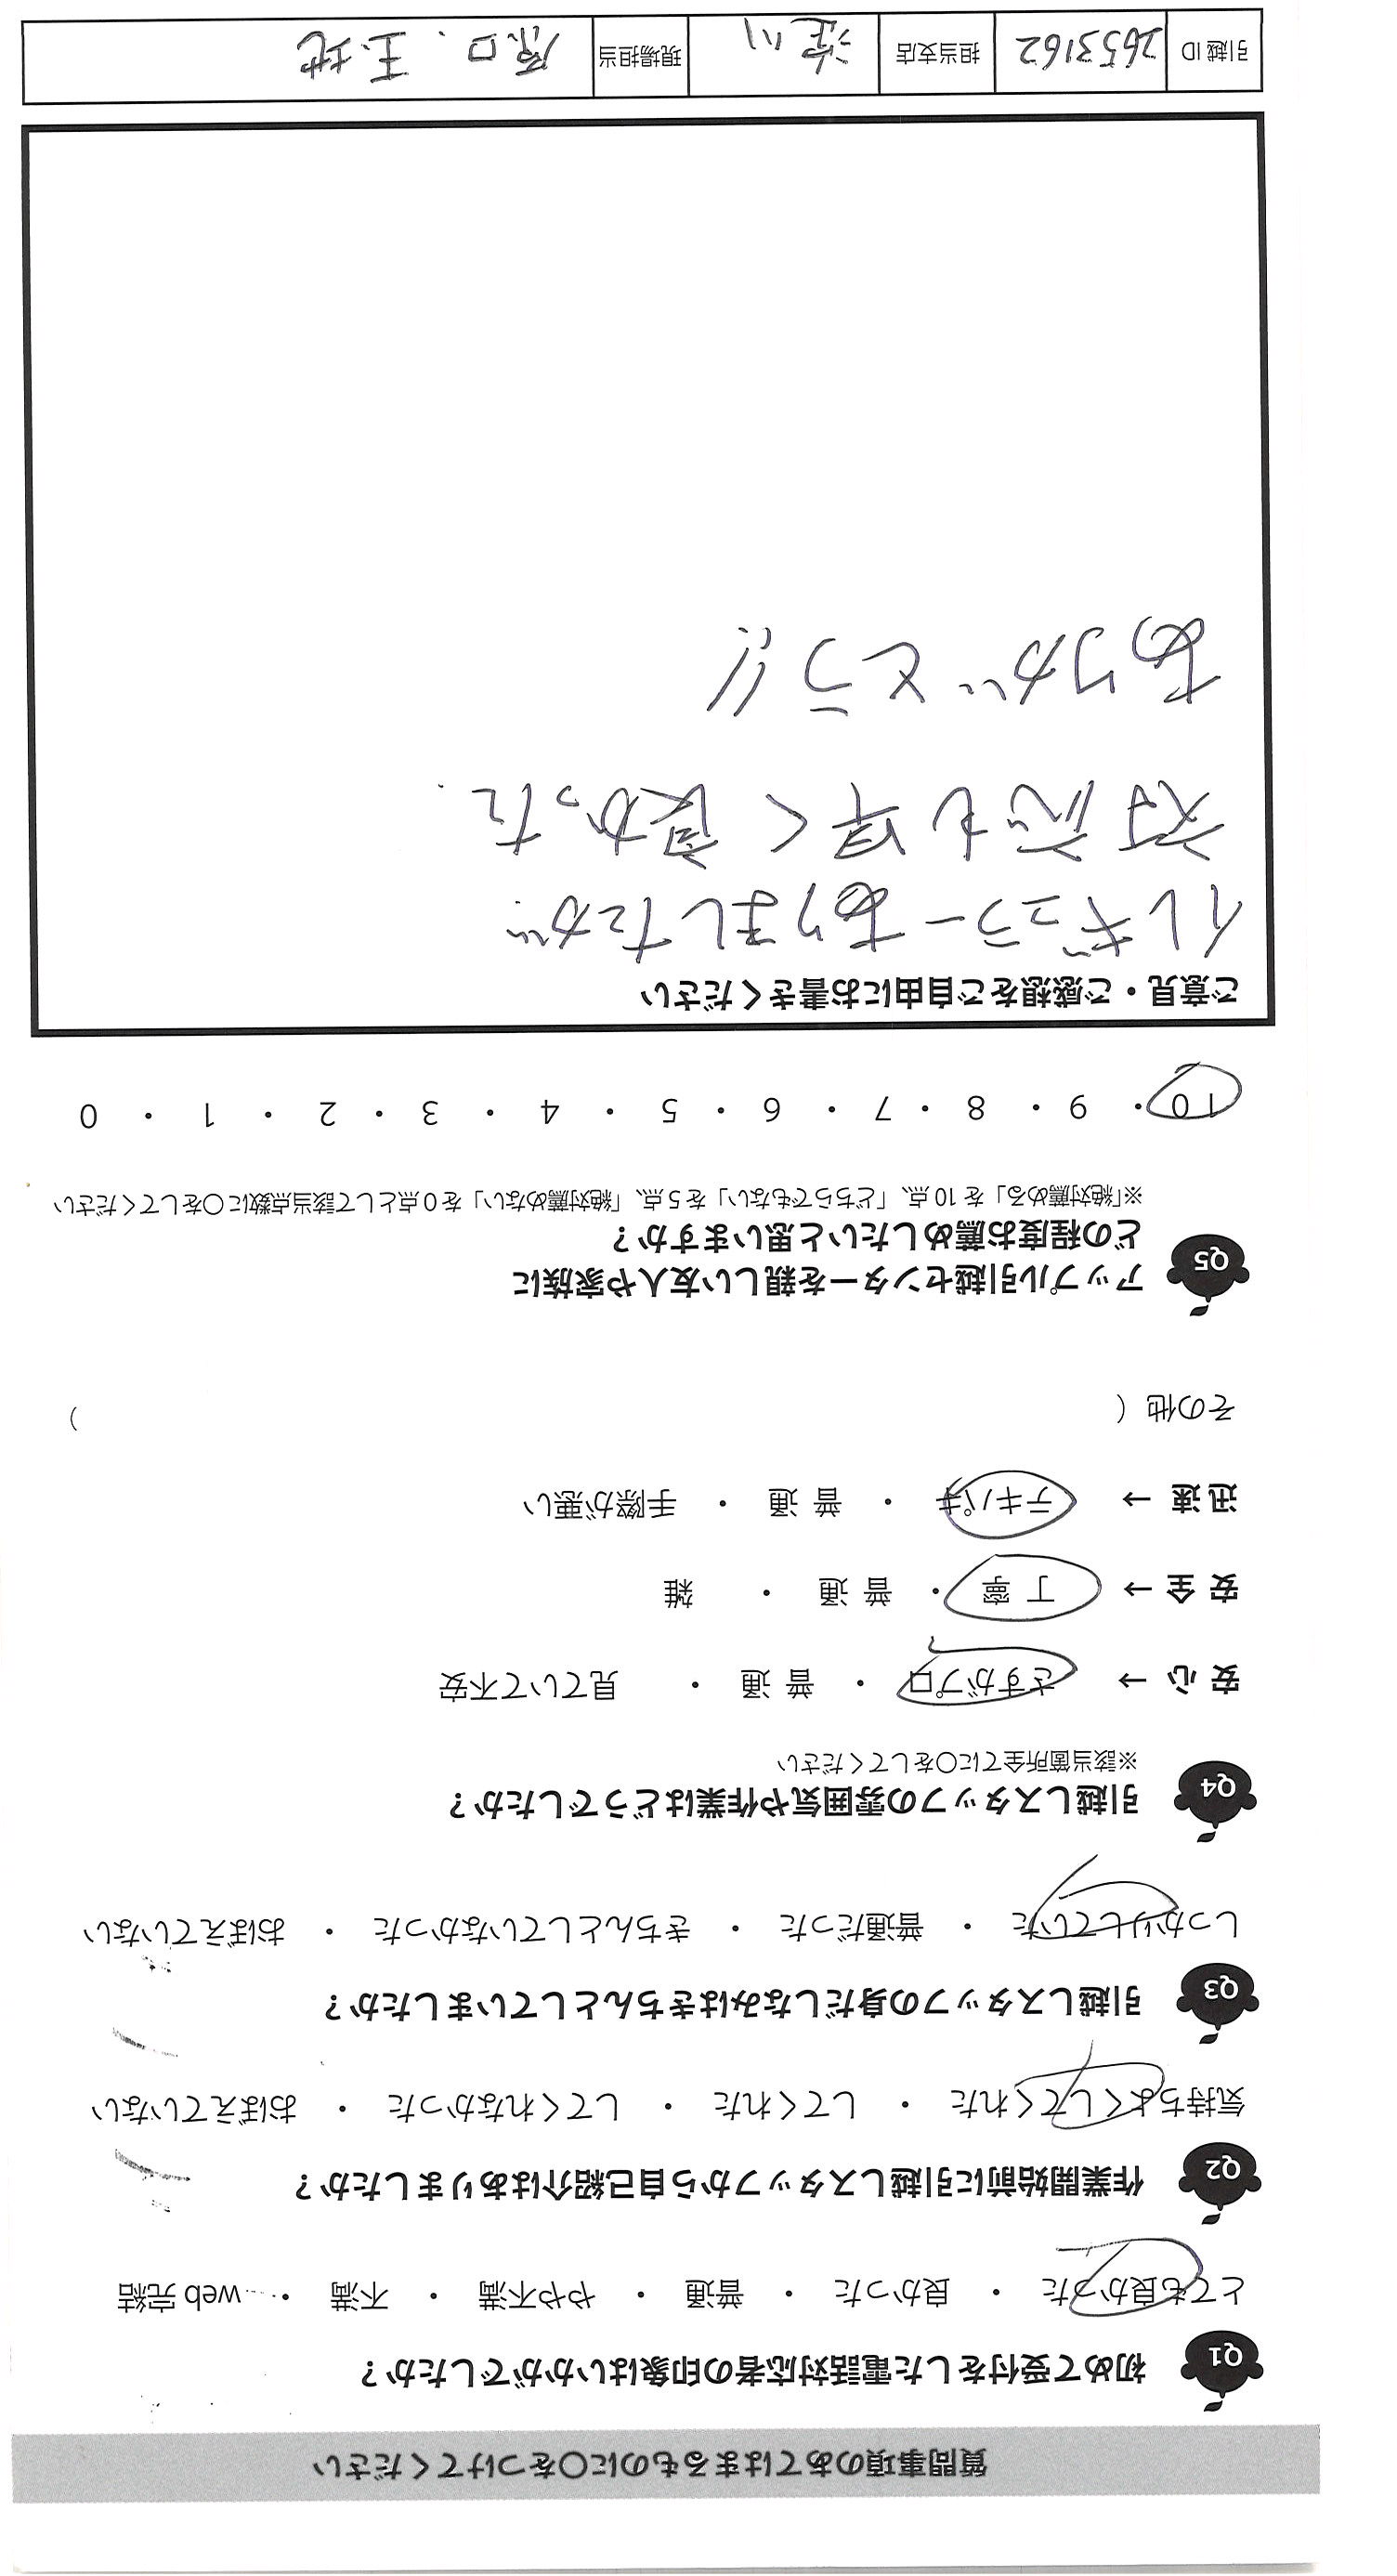 質問事項のあてはまるものに〇をつけてください
Q1 初めて受付をした電話対応者の印象はいかがでしたか？
とても良かった ・ 良かった ・ 普通 ・ やや不満 ・ 不満 ・…web 完結
Q2 作業開始前に引越しスタッフから自己紹介はありましたか？
気持ちよくしてくれた ・ してくれた ・ してくれなかった ・ おぼえていない
Q3 引越しスタッフの身だしなみはきちんとしていましたか？
しっかりしていた ・ 普通だった ・ きちんとしていなかった ・ おぼえていない
Q4 引越しスタッフの雰囲気や作業はどうでしたか？
※該当箇所全てに〇をしてください
安 心 → さすがプロ ・ 普 通 ・ 見ていて不安
安 全 → 丁 寧 ・ 普 通 ・ 雑
迅 速 → テキパキ ・ 普 通 ・ 手際が悪い
その他 （ ）
Q5 アップル引越センターを親しい友人や家族に
どの程度お薦めしたいと思いますか？
※「絶対薦める」を 10 点、「どちらでもない」を 5 点、「絶対薦めない」を 0 点として該当点数に〇をしてください
10 ・ 9 ・ 8 ・ 7 ・ 6 ・ 5 ・ 4 ・ 3 ・ 2 ・ 1 ・ 0
ご意見・ご感想をご自由にお書きください
イレギュラーありましたが
対応も早く良かった.
ありがとう!!
引越 ID 2653162 担当支店 淀川 現場担当 原口. 玉地